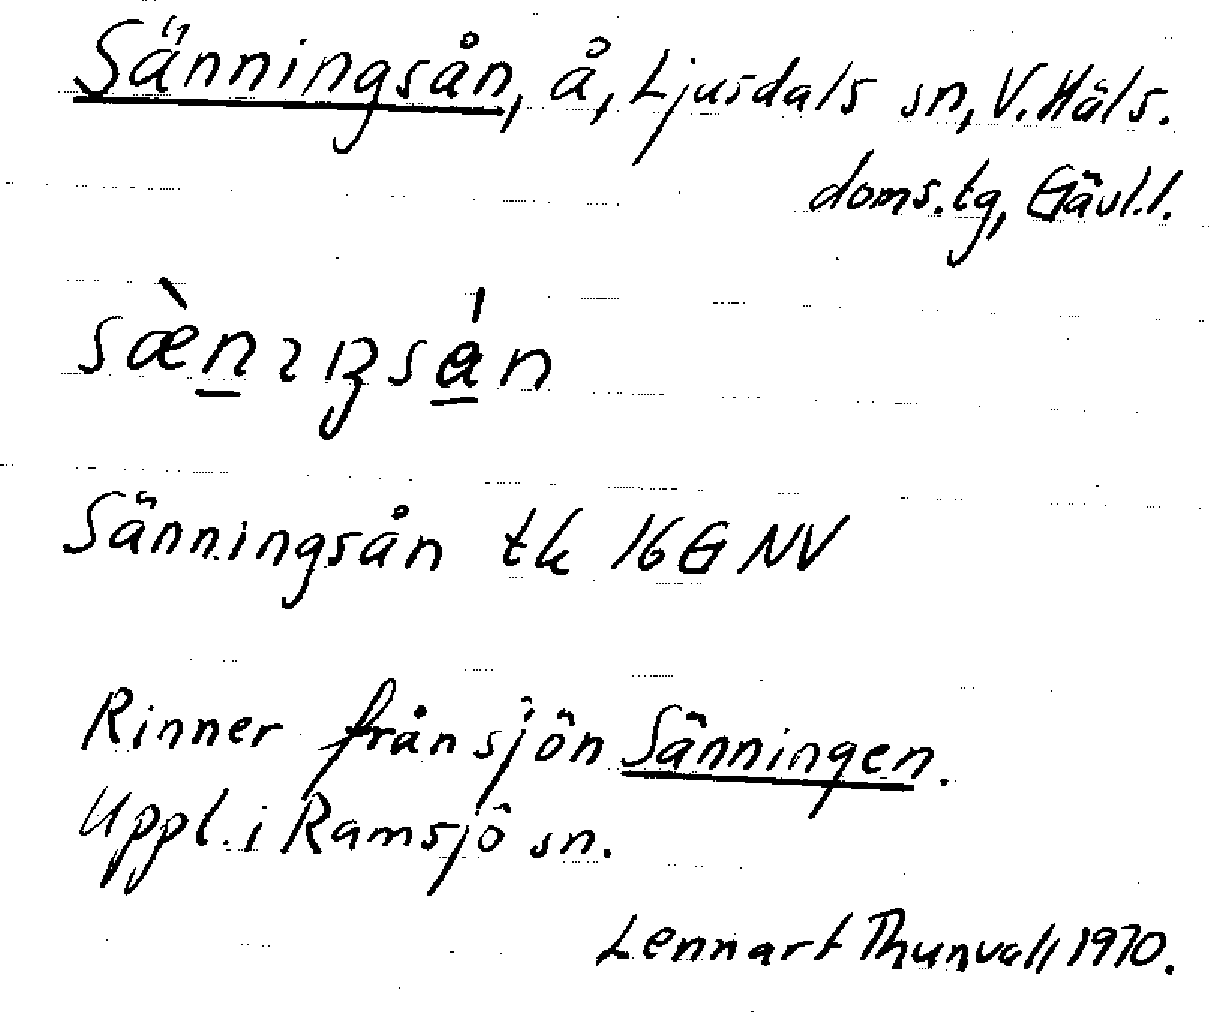 Sänningsån, å, Ljusdals sn, V. Häls.
doms.tg, Gävl.l.
Sänningsån tk 16G NV
Rinner från sjön Sänningen.
Uppl. i Ramsjö sn.
Lennart Thunvall 1970.